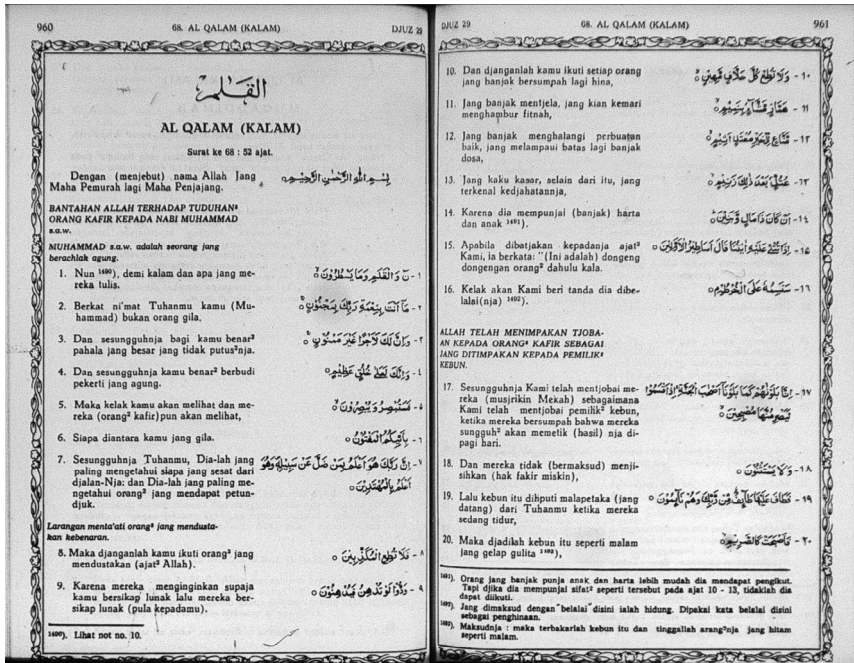 960 68. AL QALAM (KALAM) DJUZ 29
القلم
AL QALAM (KALAM)
Surat ke 68 : 52 ajat.
Dengan (menjebut) nama Allah Jang
Maha Pemurah lagi Maha Penjajang.
بِسْمِ اللهِ الرَّحْمٰنِ الرَّحِيْمِ
BANTAHAN ALLAH TERHADAP TUDUHAN²
ORANG KAFIR KEPADA NABI MUHAMMAD
s.a.w.
MUHAMMAD s.a.w. adalah seorang jang
berachlak agung.
1. Nun ¹⁴⁹⁰), demi kalam dan apa jang me-
reka tulis.
١ - نٓ وَالْقَلَمِ وَمَا يَسْطُرُوْنَ ۙ
2. Berkat ni'mat Tuhanmu kamu (Mu-
hammad) bukan orang gila.
٢ - مَآ اَنْتَ بِنِعْمَةِ رَبِّكَ بِمَجْنُوْنٍ ۚ
3. Dan sesungguhnja bagi kamu benar²
pahala jang besar jang tidak putus²nja.
٣ - وَاِنَّ لَكَ لَاَجْرًا غَيْرَ مَمْنُوْنٍ ۚ
4. Dan sesungguhnja kamu benar² berbudi
pekerti jang agung.
٤ - وَاِنَّكَ لَعَلٰى خُلُقٍ عَظِيْمٍ ۝
5. Maka kelak kamu akan melihat dan me-
reka (orang² kafir)pun akan melihat,
٥ - فَسَتُبْصِرُ وَيُبْصِرُوْنَ ۙ
6. Siapa diantara kamu jang gila.
٦ - بِاَيِّكُمُ الْمَفْتُوْنُ ۝
7. Sesungguhnja Tuhanmu, Dia-lah jang
paling mengetahui siapa jang sesat dari
djalan-Nja: dan Dia-lah jang paling me-
ngetahui orang² jang mendapat petun-
djuk.
٧ - اِنَّ رَبَّكَ هُوَ اَعْلَمُ بِمَنْ ضَلَّ عَنْ سَبِيْلِهٖ وَهُوَ
اَعْلَمُ بِالْمُهْتَدِيْنَ ۝
Larangan menta'ati orang² jang mendusta-
kan kebenaran.
8. Maka djanganlah kamu ikuti orang² jang
mendustakan (ajat² Allah).
٨ - فَلَا تُطِعِ الْمُكَذِّبِيْنَ ۝
9. Karena mereka menginginkan supaja
kamu bersikap lunak lalu mereka ber-
sikap lunak (pula kepadamu).
٩ - وَدُّوْا لَوْ تُدْهِنُ فَيُدْهِنُوْنَ ۝
¹⁴⁹⁰). Lihat not no. 10.
DJUZ 29 68. AL QALAM (KALAM) 961
10. Dan djanganlah kamu ikuti setiap orang
jang banjak bersumpah lagi hina,
١٠ - وَلَا تُطِعْ كُلَّ حَلَّافٍ مَّهِيْنٍ ۝
11. Jang banjak mentjela, jang kian kemari
menghambur fitnah,
١١ - هَمَّازٍ مَّشَّآءٍ بِنَمِيْمٍ ۝
12. Jang banjak menghalangi perbuatan
baik, jang melampaui batas lagi banjak
dosa,
١٢ - مَنَّاعٍ لِّلْخَيْرِ مُعْتَدٍ اَثِيْمٍ ۝
13. Jang kaku kasar, selain dari itu, jang
terkenal kedjahatannja,
١٣ - عُتُلٍّ بَعْدَ ذٰلِكَ زَنِيْمٍ ۝
14. Karena dia mempunjai (banjak) harta
dan anak ¹⁴⁹¹).
١٤ - اَنْ كَانَ ذَا مَالٍ وَّبَنِيْنَ ۝
15. Apabila dibatjakan kepadanja ajat²
Kami, ia berkata: "(Ini adalah) dongeng
dongengan orang² dahulu kala.
١٥ - اِذَا تُتْلٰى عَلَيْهِ اٰيٰتُنَا قَالَ اَسَاطِيْرُ الْاَوَّلِيْنَ ۝
16. Kelak akan Kami beri tanda dia dibe-
lalai(nja) ¹⁴⁹²).
١٦ - سَنَسِمُهٗ عَلَى الْخُرْطُوْمِ ۝
ALLAH TELAH MENIMPAKAN TJOBA-
AN KEPADA ORANG² KAFIR SEBAGAI
JANG DITIMPAKAN KEPADA PEMILIK²
KEBUN.
17. Sesungguhnja Kami telah mentjobai me-
reka (musjrikin Mekah) sebagaimana
Kami telah mentjobai pemilik² kebun,
ketika mereka bersumpah bahwa mereka
sungguh² akan memetik (hasil) nja di-
pagi hari.
١٧ - اِنَّا بَلَوْنٰهُمْ كَمَا بَلَوْنَآ اَصْحٰبَ الْجَنَّةِ ۚ اِذْ اَقْسَمُوْا
لَيَصْرِمُنَّهَا مُصْبِحِيْنَ ۝
18. Dan mereka tidak (bermaksud) menji-
sihkan (hak fakir miskin),
١٨ - وَلَا يَسْتَثْنُوْنَ ۝
19. Lalu kebun itu dihputi malapetaka (jang
datang) dari Tuhanmu ketika mereka
sedang tidur,
١٩ - فَطَافَ عَلَيْهَا طَآئِفٌ مِّنْ رَّبِّكَ وَهُمْ نَآئِمُوْنَ ۝
20. Maka djadilah kebun itu seperti malam
jang gelap gulita ¹⁴⁹³),
٢٠ - فَاَصْبَحَتْ كَالصَّرِيْمِ ۝
¹⁴⁹¹). Orang jang banjak punja anak dan harta lebih mudah dia mendapat pengikut.
Tapi djika dia mempunjai sifat² seperti tersebut pada ajat 10 - 13, tidaklah dia
dapat diikuti.
¹⁴⁹²). Jang dimaksud dengan "belalai" disini ialah hidung. Dipakai kata belalai disini
sebagai penghinaan.
¹⁴⁹³). Maksudnja : maka terbakarlah kebun itu dan tinggallah arang²nja jang hitam
seperti malam.